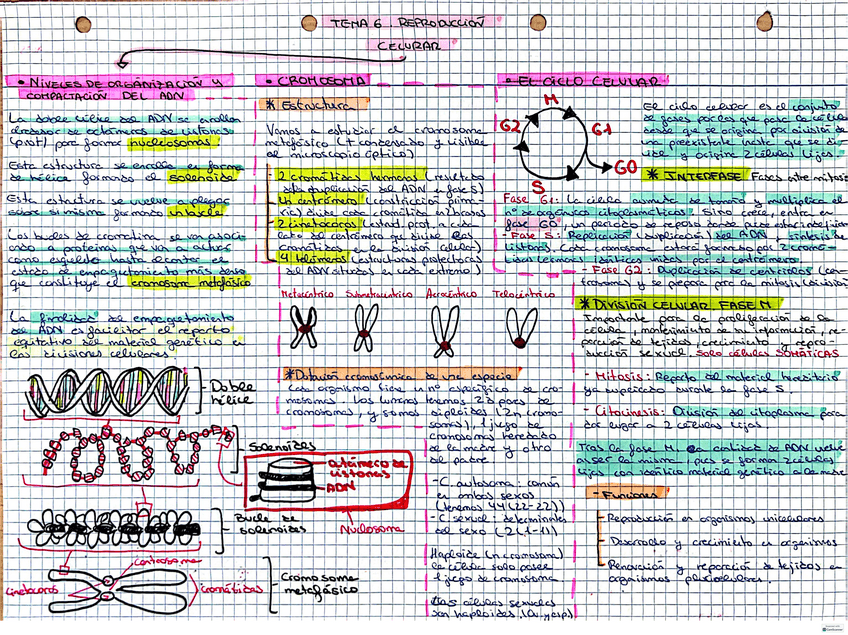 TEMA 6. REPRODUCCIÓN
CELULAR
• NIVELES DE ORGANIZACIÓN Y
COMPACTACIÓN DEL ADN
La doble hélice del ADN se enrolla
alrededor de octámeros de histonas
(prot) para formar nucleosomas
Esta estructura se enrolla en forma
de hélice formando el solenoide
Esta estructura se vuelve a plegar
sobre sí misma formando un bucle
Los bucles de cromatina se van
a proteínas que van a actuar
como esqueleto hasta alcanzar el
estado de empaquetamiento más denso
que constituye el cromosoma metafásico
La finalidad del empaquetamiento
del ADN es facilitar el reparto
equitativo del material genético en
las divisiones celulares.
Doble
hélice
Solenoides
octámero de
histonas
ADN
Nuclosoma
Bucle de
solenoides
Centrosoma
Cinetocoros
Cromátidas
Cromosoma
metafásico
• CROMOSOMA
* Estructura
Vamos a estudiar el cromosoma
metafásico (+ condensado y visible
al microscopio óptico)
2 cromátidas hermanas (resultado
de la duplicación del ADN en fase S)
Un centrómero (constricción prima-
ria) divide cromátida en brazos
2 cinetocoros (estruct. prot. a cada
lado del centrómero
durante la división celular)
4 telómeros (estructuras protectoras
del ADN situadas en cada extremo)
Metacéntrico Submetacéntrico Acrocéntrico Telocéntrico
* Dotación cromosómica de una especie
Cada organismo tiene un nº específico de cro-
mosomas. Los humanos tenemos 23 pares de
cromosomas, y somos diploides (2n cromo-
somas), 1 juego de
cromosomas heredado
de la madre y otro
del padre
- C. autosoma: común
en ambos sexos
(tenemos 44 (22-22))
- C. sexual: determinantes
del sexo (2 (1-1))
Haploide (n cromosoma)
la célula solo posee
1 juego de cromosomas.
Las células sexuales
son haploides
• EL CICLO CELULAR
M
G2
G1
G0
S
El ciclo celular es el conjunto
de fases por las que pasa la célula
desde que se origina, por división de
una preexistente, hasta que se di-
vide y origina 2 células hijas.
* INTERFASE Fases entre mitosis
Fase G1: La célula aumenta de tamaño y multiplica el
nº de orgánulos citoplasmáticos. Si no crece, entra en
fase G0, un periodo de reposo
- Fase S: Replicación (duplicación) del ADN y síntesis de
histonas. Cada cromosoma estará formado por 2 cromá-
tidas hermanas idénticas unidas por el centrómero.
- Fase G2: Duplicación de centriolos (cen-
trosoma) y se prepara para la mitosis (división)
* DIVISIÓN CELULAR. FASE M
Importante para la proliferación de la
célula, mantenimiento de su información, re-
paración de tejidos, crecimiento y repro-
ducción sexual. SOLO CÉLULAS SOMÁTICAS
- Mitosis: Reparto del material hereditario
ya duplicado durante la fase S.
- Citocinesis: División del citoplasma para
dar lugar a 2 células hijas.
Tras la fase M, la cantidad de ADN vuelve
a ser la misma, pues se forman 2 células
hijas con idéntico material genético a la madre
- Funciones
- Reproducción en organismos unicelulares
- Desarrollo y crecimiento en organismos
- Renovación y reparación de tejidos en
organismos pluricelulares.